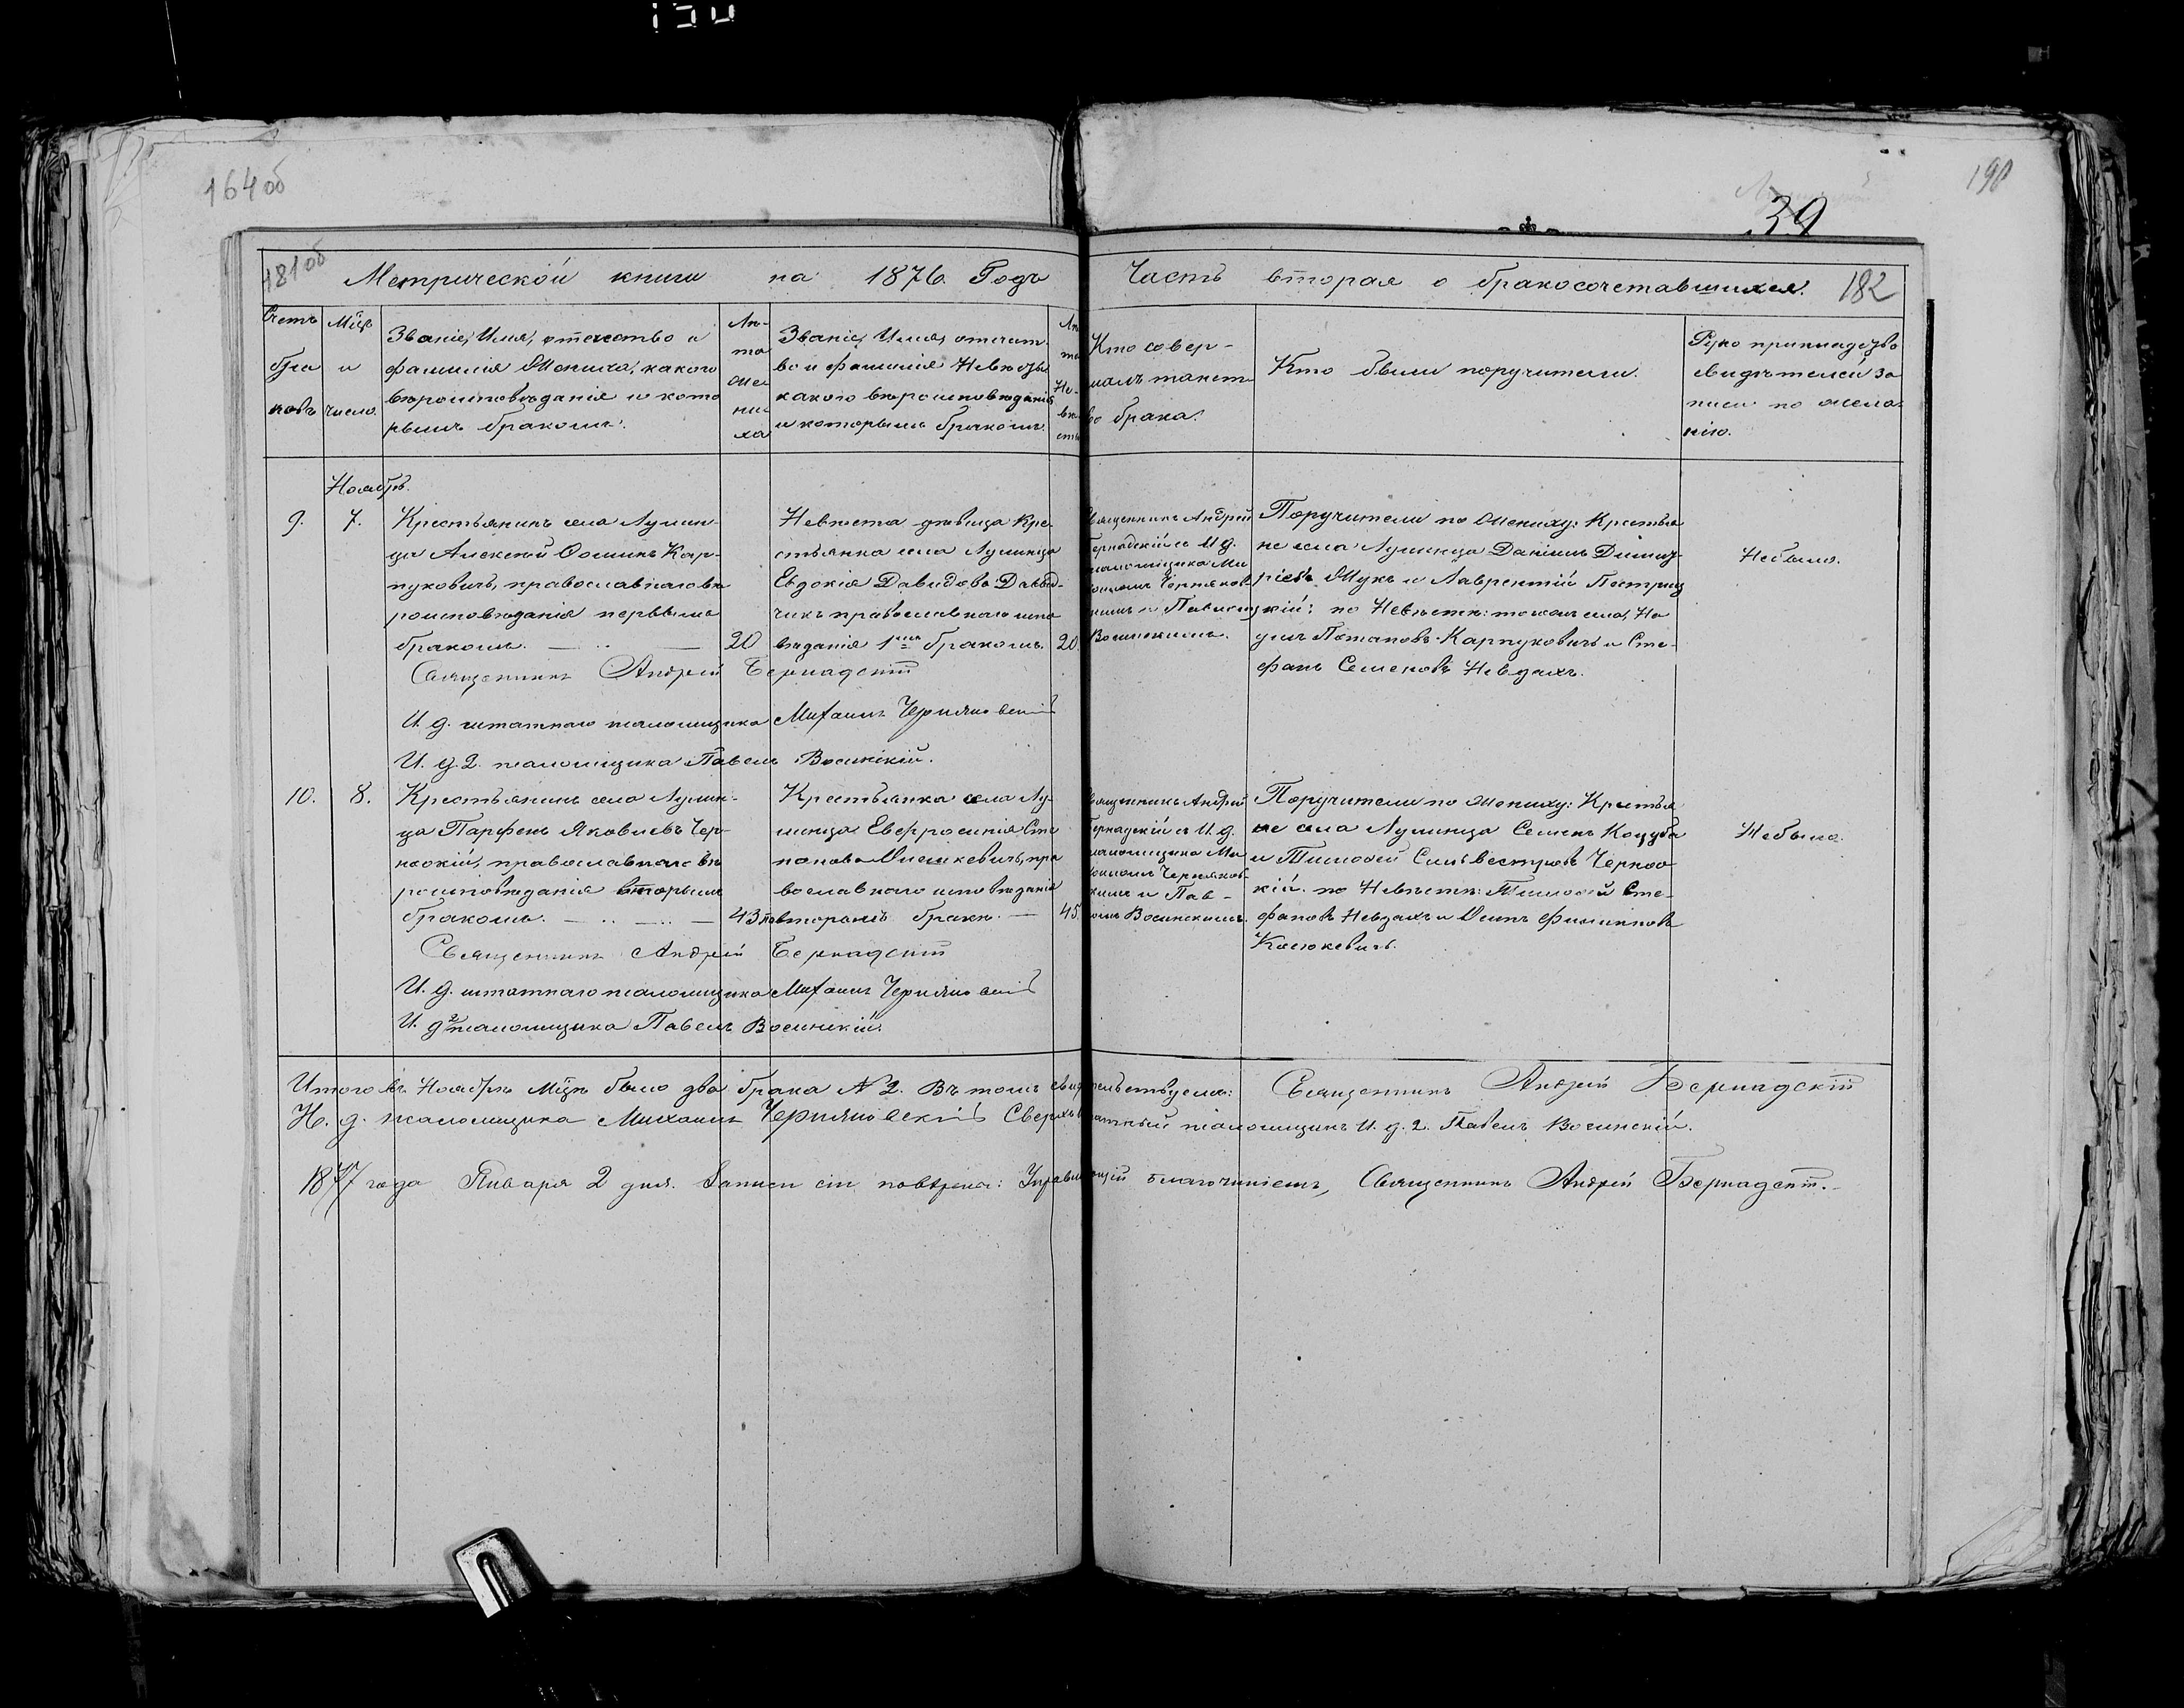 164 об
190
39
181 об
Метрической книги на 1876. Годъ Часть вторая о бракосочетавшихся. 182
Счетъ браковъ
Мѣця и число.
Званіе, Имя, отечество и
фамилія Жениха, какого
вѣроисповѣданія и кото
рымъ бракомъ.
Лѣ-
та
же
ни
ха
Званіе, Имя, отечест-
во и фамилія Невѣсты
какого вѣроисповѣданія
и которымъ бракомъ.
Лѣ
та
Не-
вѣ
сты
Кто совер-
шалъ таинст
во брака.
Кто были поручители.
Руко прикладство
свидѣтелей за
писи по жела-
нію.
Ноябрь.
9. 7.
Крестьянинъ села Лунин-
ца Алексѣй Ѳоминъ Кар-
пуковичъ, православнаго вѣ
роисповѣданія первымъ
бракомъ. 20
Невѣста дѣвица Кре-
стьянка села Лунинца
Евдокія Давидова Давыд-
чикъ православнаго испо
вѣданія 1ымъ бракомъ. 20.
Священникъ Андрей
Бернадскій съ И. д.
псаломщика Ми
хаиломъ Черняков-
скимъ и Павломъ
Восинскимъ.
Поручители по Жениху: Крестья
не села Лунинца Даніилъ Димит-
ріевъ Жукъ и Лаврентій Пастриц
кій: по Невѣстѣ: того жъ села, На
умъ Потаповъ Карпуковичъ и Сте-
фанъ Семеновъ Невдахъ.
Небыло.
Священникъ Андрей Бернадскій
И. д. штатнаго псаломщика Михаилъ Черняковскій
И. д. 2. псаломщика Павелъ Восинскій.
10. 8.
Крестьянинъ села Лунин-
ца Парфенъ Яковлевъ Чер-
ноокій, православнаго вѣ
роисповѣданія вторымъ
бракомъ. 43
Крестьянка села Лу-
нинца Евфросинія Сте
панова Мисюкевичъ, пра
вославнаго исповѣданія
повторомъ бракѣ. 45.
Священникъ Андрей
Бернадскій съ И. д.
псаломщика Ми
хаиломъ Черняков-
скимъ и Пав-
ломъ Восинскимъ.
Поручители по Жениху: Крестья
не села Лунинца Семенъ Коцуба
и Тимоѳей Сильвестровъ Черноо
кій. по Невѣстѣ: Тимоѳей Сте-
фановъ Невдахъ и Осипъ Филиповъ
Касюкевичъ.
Небыло.
Священникъ Андрей Бернадскій
И. д. штатнаго псаломщика Михаилъ Черняковскій
И. д. 2 псаломщика Павелъ Восинскій.
Итого въ Ноябрѣ Мѣцѣ было два брака N 2. Въ томъ свидѣтельствуемъ: Священникъ Андрей Бернадскій
И. д. псаломщика Михаилъ Черняковскій Сверхштатный псаломщикъ И. д. 2. Павелъ Восинскій.
1877 года Января 2 дня. Записи сіи повѣрялъ: Управляющій благочиніемъ, Священникъ Андрей Бернадскій.